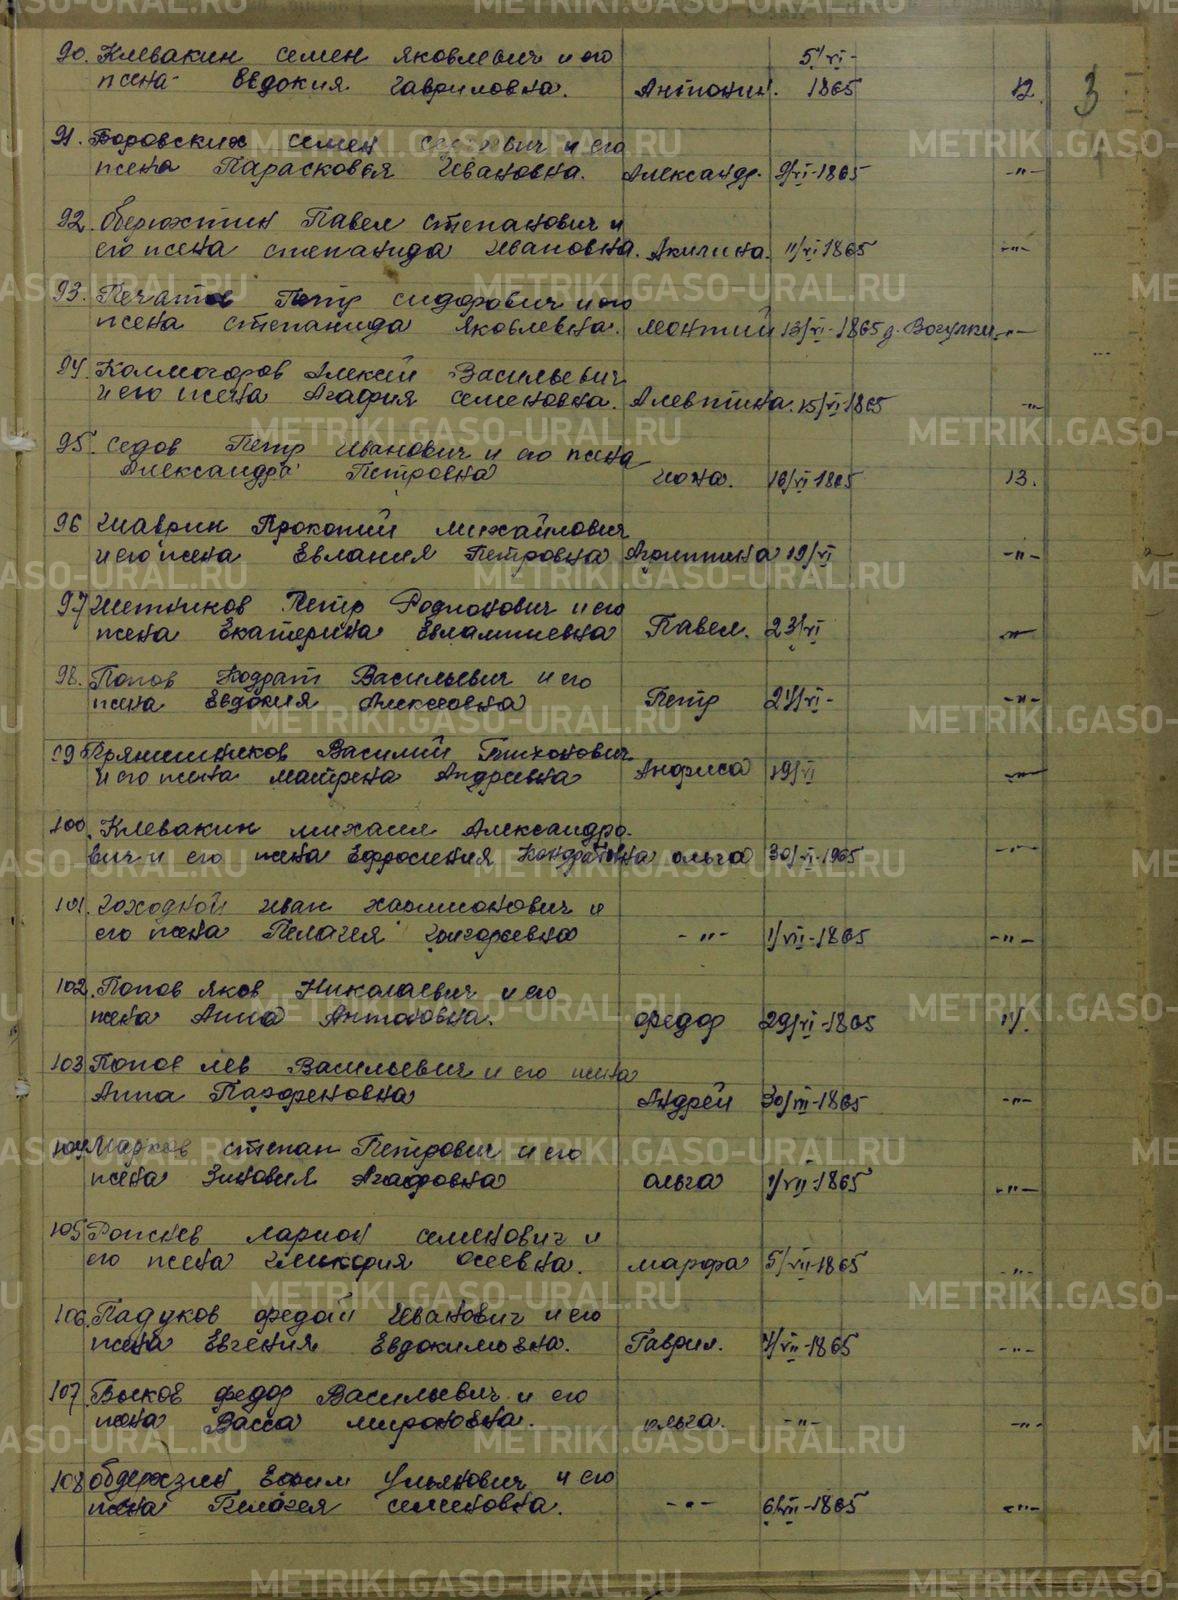 3
90. Клевакин Семен Яковлевич и его 5/VI-
жена Евдокия Гавриловна. Антонин. 1865 12.
91. Боровских Семен и его
жена Парасковья Ивановна. Александр. 9/VI-1865 -"-
92. Оберюхтин Павел Степанович и
его жена Степанида Ивановна. Акилина. 11/VI 1865 -"-
93. Петр Сидорович и его
жена Степанида Яковлевна. Леонтий 13/VI-1865 д. Вогулки -"-
94. Колмогоров Алексей Васильевич
и его жена Агафия Семеновна. Алевтина. 15/VI-1865 -"-
95. Седов Петр Иванович и его жена
Александра Петровна Иона. 16/VI-1865 13.
96 Шаврин Прокопий Михайлович
и его жена Евлания Петровна Агриппина 19/VI -"-
97 Петр Родионович и его
жена Екатерина Евлампиевна Павел. 23/VI -"-
98. Попов Кодрат Васильевич и его
жена Евдокия Алексеевна Петр 24/VI- -"-
99 Прянишников Василий Тихонович
и его жена Матрена Андреевна Анфиса 19/VI -"-
100. Клевакин Михаил Александро-
вич и его жена Ефросиния Кондратовна Ольга 30/VI-1965 -"-
101. Иван и
его жена Пелагея Григорьевна -"- 1/VII-1865 -"-
102. Попов Яков Николаевич и его
жена Анна Антоновна. Федор 29/VI-1865 11.
103 Попов Лев Васильевич и его жена
Анна Парфеновна Андрей 30/III-1865 -"-
104 Марков Степан Петрович и его
жена Зиновия Агафовна Ольга 1/VII-1865 -"-
105 Ларион Семенович и
его жена Осеевна. Марфа 5/VII-1865 -"-
106. Падуков Федот Иванович и его
жена Евгения Евдокимовна. Гаврил. 4/VII-1865 -"-
107 Быков Федор Васильевич и его
жена Васса Мироновна. Ольга. -"- -"-
108 Ефим Ульянович и его
жена Пелагея Семеновна. -"- 6/VII-1865 -"-
METRIKI.GASO-URAL.RU